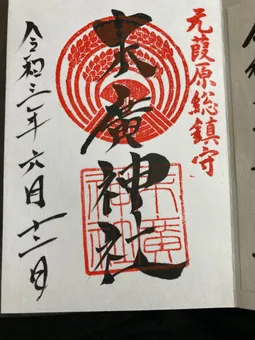 元葭原総鎮守
末廣神社
末廣
神社
令和三年六月十二日